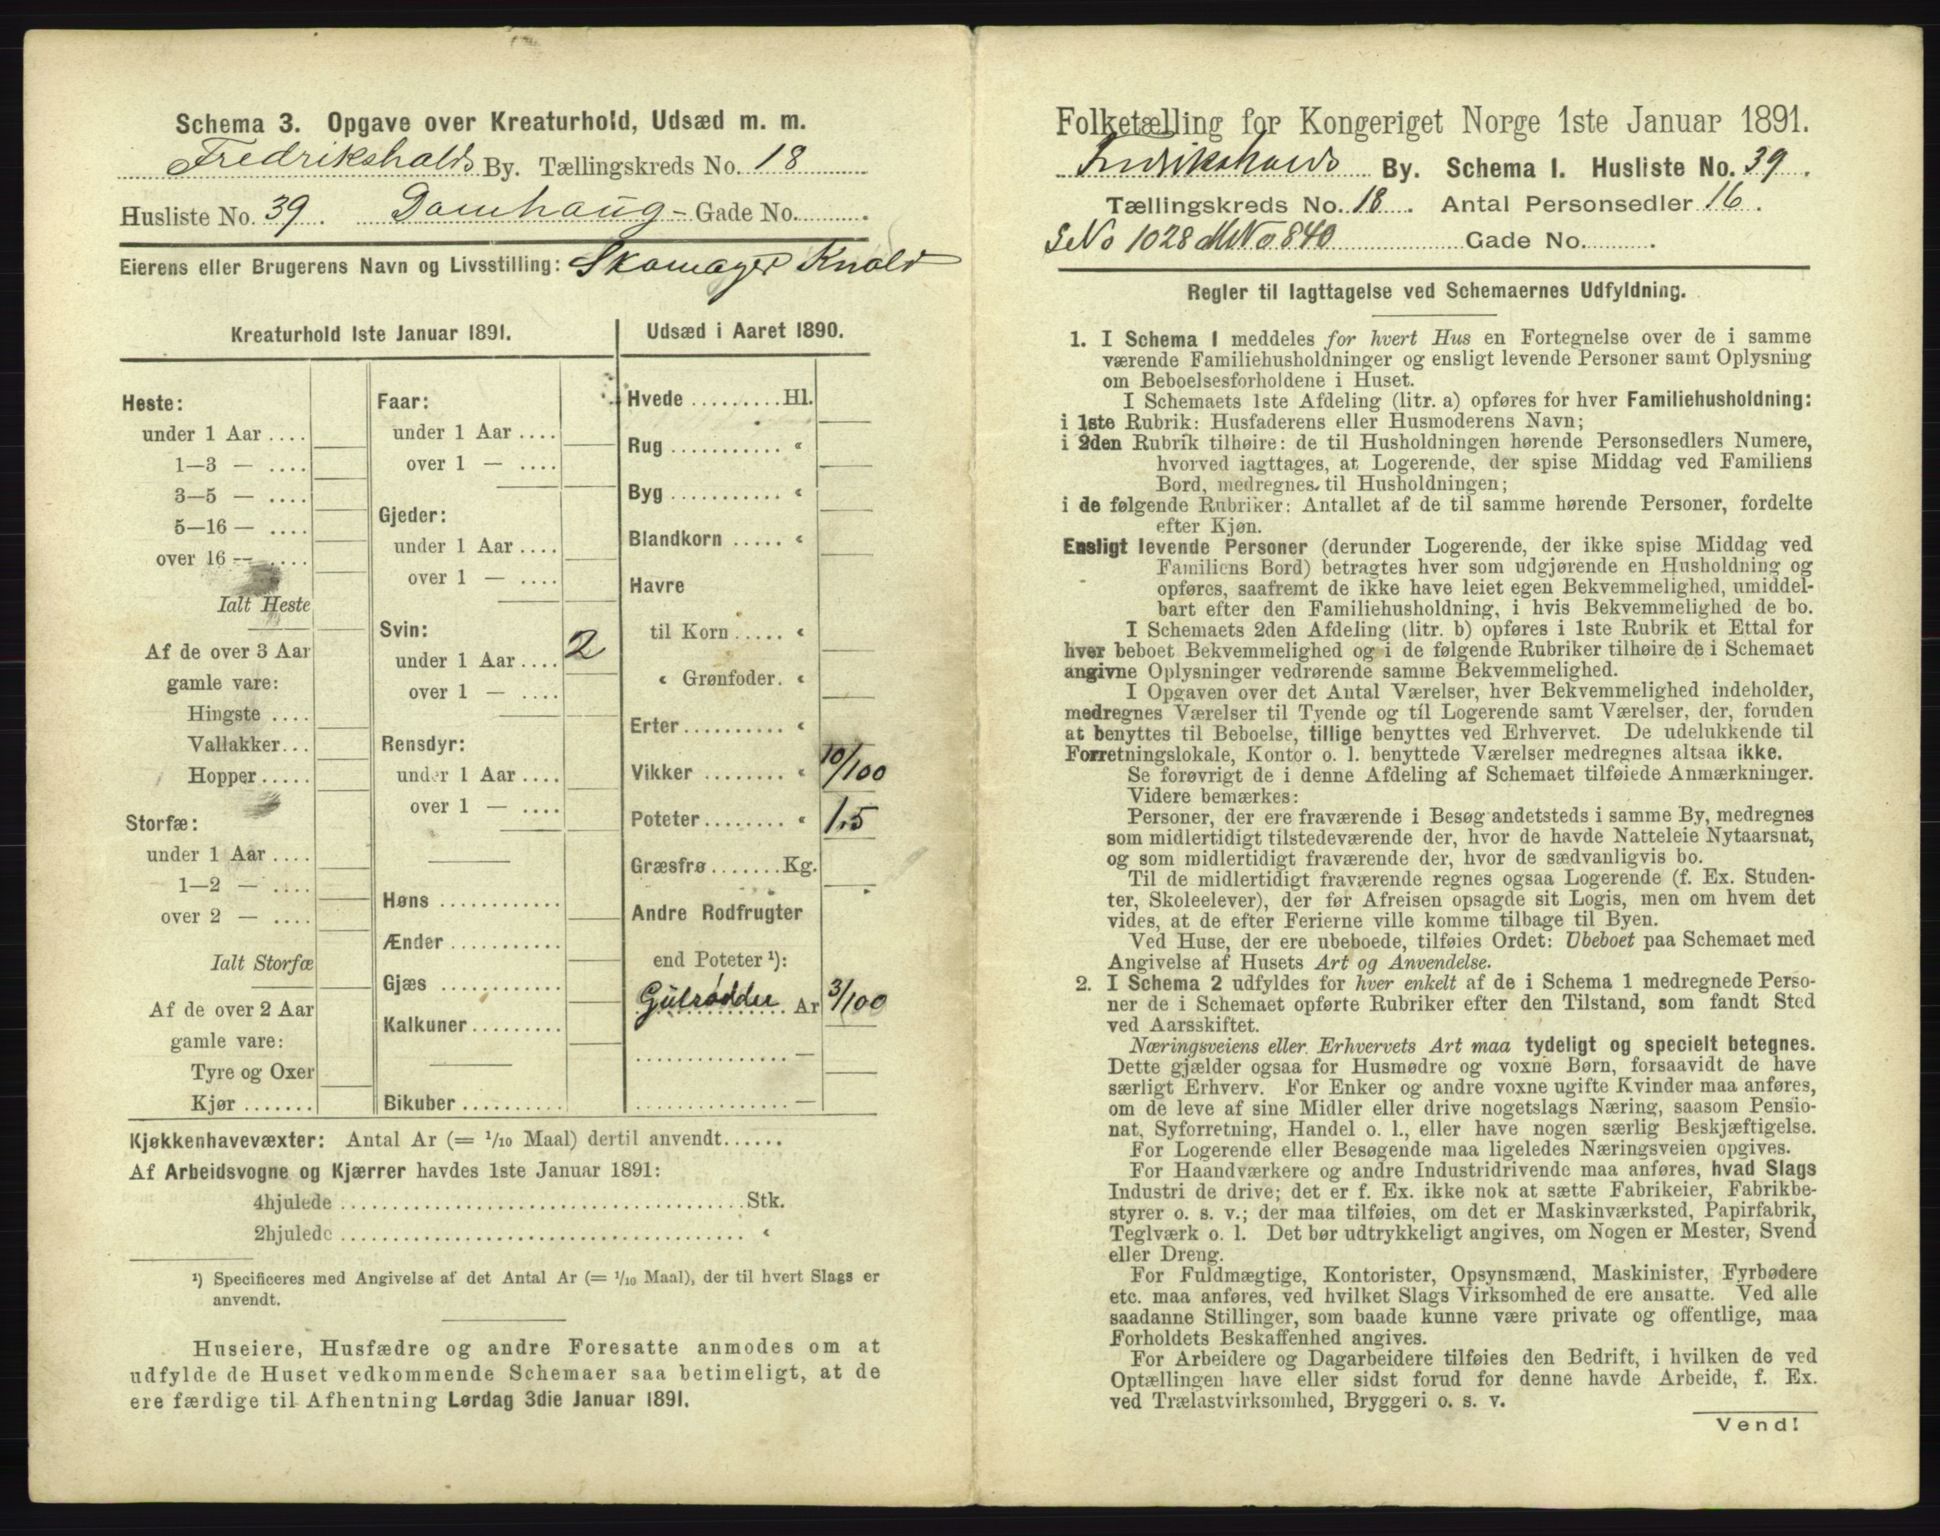 Schema 3. Opgave over Kreaturhold, Udsæd m. m.
Fredrikshalds By. Tællingskreds No. 18
Husliste No. 39. Damhaug - Gade No.
Eierens eller Brugerens Navn og Livsstilling: Skomager Knold
Kreaturhold 1ste Januar 1891.
Heste:
under 1 Aar ....
1—3 — ....
3—5 — ....
5—16 — ....
over 16 — ....
Ialt Heste
Af de over 3 Aar
gamle vare:
Hingste ....
Vallakker...
Hopper.....
Storfæ:
under 1 Aar ....
1—2 — ....
over 2 — ....
Ialt Storfæ
Af de over 2 Aar
gamle vare:
Tyre og Oxer
Kjør.......
Faar:
under 1 Aar ....
over 1 — ....
Gjeder:
under 1 Aar ....
over 1 — ....
Svin:
under 1 Aar .... 2
over 1 — ....
Rensdyr:
under 1 Aar ....
over 1 — ....
Høns ............
Ænder ...........
Gjæs ............
Kalkuner .........
Bikuber ..........
Udsæd i Aaret 1890.
Hvede .........Hl.
Rug ........... "
Byg ........... "
Blandkorn ..... "
Havre
til Korn ..... "
" Grønfoder. "
Erter .......... "
Vikker ........ " 10/100
Poteter ........ " 1,5
Græsfrø .......Kg.
Andre Rodfrugter
end Poteter ¹):
Gülrødder Ar 3/100
.............. —
.............. —
Kjøkkenhavevæxter: Antal Ar (= 1/10 Maal) dertil anvendt......
Af Arbeidsvogne og Kjærrer havdes 1ste Januar 1891:
4hjulede ..................................... Stk.
2hjulede ..................................... "
¹) Specificeres med Angivelse af det Antal Ar (= 1/10 Maal), der til hvert Slags er
anvendt.
Huseiere, Husfædre og andre Foresatte anmodes om at
udfylde de Huset vedkommende Schemaer saa betimeligt, at de
ere færdige til Afhentning Lørdag 3die Januar 1891.
Folketælling for Kongeriget Norge 1ste Januar 1891.
Fredrikshalds By. Schema I. Husliste No. 39.
Tællingskreds No. 18. Antal Personsedler 16.
SNo 1028 MNo 840 Gade No. .
Regler til Iagttagelse ved Schemaernes Udfyldning.
1. I Schema 1 meddeles for hvert Hus en Fortegnelse over de i samme
værende Familiehusholdninger og ensligt levende Personer samt Oplysning
om Beboelsesforholdene i Huset.
I Schemaets 1ste Afdeling (litr. a) opføres for hver Familiehusholdning:
i 1ste Rubrik: Husfaderens eller Husmoderens Navn;
i 2den Rubrik tilhøire: de til Husholdningen hørende Personsedlers Numere,
hvorved iagttages, at Logerende, der spise Middag ved Familiens
Bord, medregnes til Husholdningen;
i de følgende Rubriker: Antallet af de til samme hørende Personer, fordelte
efter Kjøn.
Ensligt levende Personer (derunder Logerende, der ikke spise Middag ved
Familiens Bord) betragtes hver som udgjørende en Husholdning og
opføres, saafremt de ikke have leiet egen Bekvemmelighed, umiddel-
bart efter den Familiehusholdning, i hvis Bekvemmelighed de bo.
I Schemaets 2den Afdeling (litr. b) opføres i 1ste Rubrik et Ettal for
hver beboet Bekvemmelighed og i de følgende Rubriker tilhøire de i Schemaet
angivne Oplysninger vedrørende samme Bekvemmelighed.
I Opgaven over det Antal Værelser, hver Bekvemmelighed indeholder,
medregnes Værelser til Tyende og til Logerende samt Værelser, der, foruden
at benyttes til Beboelse, tillige benyttes ved Erhvervet. De udelukkende til
Forretningslokale, Kontor o. l. benyttede Værelser medregnes altsaa ikke.
Se forøvrigt de i denne Afdeling af Schemaet tilføiede Anmærkninger.
Videre bemærkes:
Personer, der ere fraværende i Besøg andetsteds i samme By, medregnes
som midlertidigt tilstedeværende der, hvor de havde Natteleie Nytaarsnat,
og som midlertidigt fraværende der, hvor de sædvanligvis bo.
Til de midlertidigt fraværende regnes ogsaa Logerende (f. Ex. Studen-
ter, Skoleelever), der før Afreisen opsagde sit Logis, men om hvem det
vides, at de efter Ferierne ville komme tilbage til Byen.
Ved Huse, der ere ubeboede, tilføies Ordet: Ubeboet paa Schemaet med
Angivelse af Husets Art og Anvendelse.
2. I Schema 2 udfyldes for hver enkelt af de i Schema 1 medregnede Perso-
ner de i Schemaet opførte Rubriker efter den Tilstand, som fandt Sted
ved Aarsskiftet.
Næringsveiens eller Erhvervets Art maa tydeligt og specielt betegnes.
Dette gjælder ogsaa for Husmødre og voxne Børn, forsaavidt de have
særligt Erhverv. For Enker og andre voxne ugifte Kvinder maa anføres,
om de leve af sine Midler eller drive nogetslags Næring, saasom Pensio-
nat, Syforretning, Handel o. l., eller have nogen særlig Beskjæftigelse.
For Logerende eller Besøgende maa ligeledes Næringsveien opgives.
For Haandværkere og andre Industridrivende maa anføres, hvad Slags
Industri de drive; det er f. Ex. ikke nok at sætte Fabrikeier, Fabrikbe-
styrer o. s. v.; der maa tilføies, om det er Maskinværksted, Papirfabrik,
Teglværk o. l. Det bør udtrykkeligt angives, om Nogen er Mester, Svend
eller Dreng.
For Fuldmægtige, Kontorister, Opsynsmænd, Maskinister, Fyrbødere
etc. maa anføres, ved hvilket Slags Virksomhed de ere ansatte. Ved alle
saadanne Stillinger, som baade kunne være private og offentlige, maa
Forholdets Beskaffenhed angives.
For Arbeidere og Dagarbeidere tilføies den Bedrift, i hvilken de ved
Optællingen have eller sidst forud for denne havde Arbeide, f. Ex.
ved Trælastvirksomhed, Bryggeri o. s. v.
Vend!